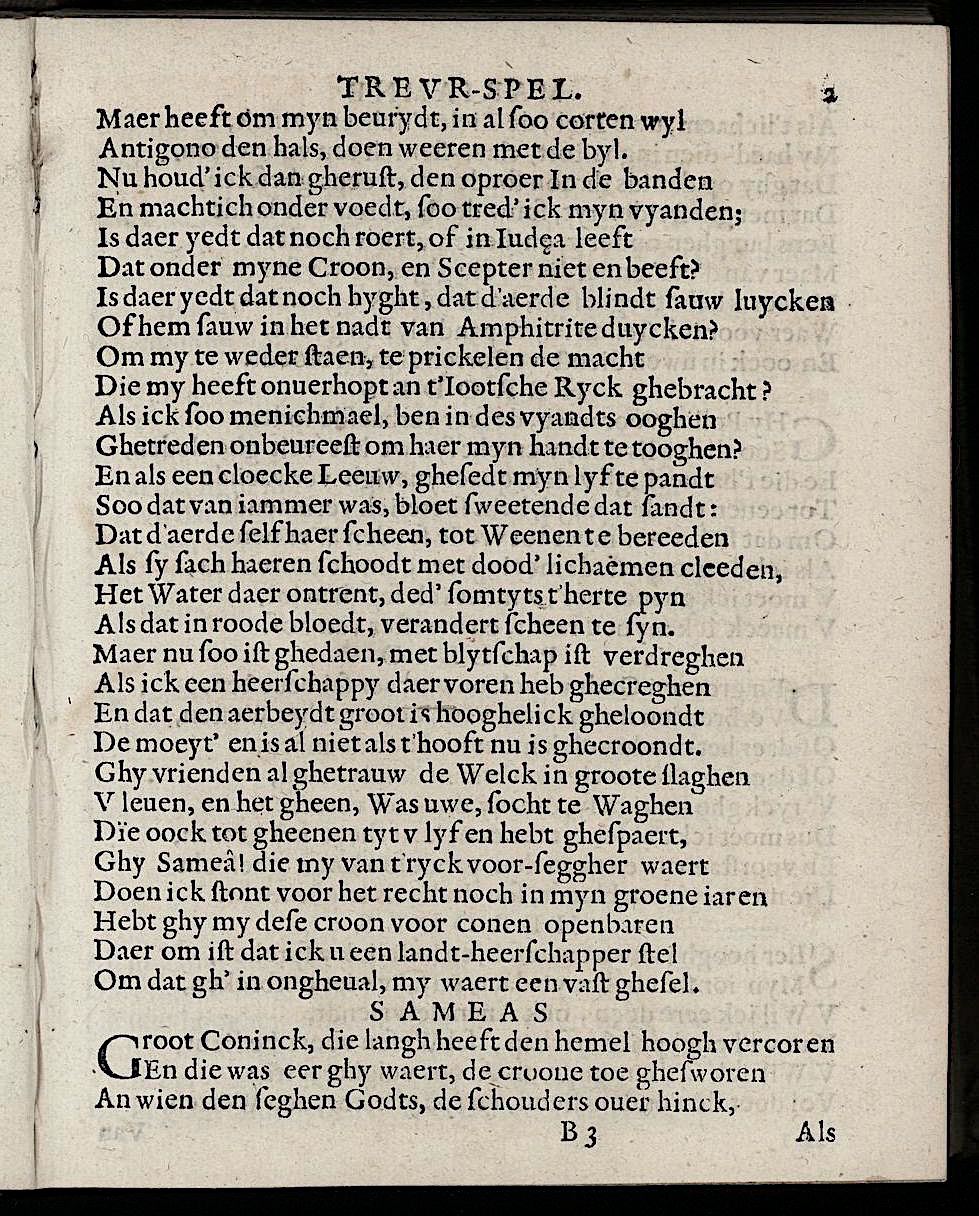 TREVR-SPEL. 2
Maer heeft om myn beurydt, in al soo corten wyl
Antigono den hals, doen weeren met de byl.
Nu houd' ick dan gherust, den oproer In de banden
En machtich onder voedt, soo tred' ick myn vyanden;
Is daer yedt dat noch roert, of in Iudęa leeft
Dat onder myne Croon, en Scepter niet en beeft?
Is daer yedt dat noch hyght, dat d'aerde blindt sauw luycken
Of hem sauw in het nadt van Amphitrite duycken?
Om my te weder staen, te prickelen de macht
Die my heeft onuerhopt an t'Iootsche Ryck ghebracht?
Als ick soo menichmael, ben in des vyandts ooghen
Ghetreden onbeureest om haer myn handt te tooghen?
En als een cloecke Leeuw, ghesedt myn lyf te pandt
Soo dat van iammer was, bloet sweetende dat sandt:
Dat d'aerde self haer scheen, tot Weenen te bereeden
Als sy sach haeren schoodt met dood' lichaemen cleeden,
Het Water daer ontrent, ded' somtyts t'herte pyn
Als dat in roode bloedt, verandert scheen te syn.
Maer nu soo ist ghedaen, met blytschap ist verdreghen
Als ick een heerschappy daer voren heb ghecreghen
En dat den aerbeydt groot is hooghelick gheloondt
De moeyt' en is al niet als t'hooft nu is ghecroondt.
Ghy vrienden al ghetrauw de Welck in groote slaghen
V leuen, en het gheen, Was uwe, socht te Waghen
Die oock tot gheenen tyt v lyf en hebt ghespaert,
Ghy Sameâ! die my van t'ryck voor-segger waert
Doen ick stont voor het recht noch in myn groene iaren
Hebt ghy my dese croon voor conen openbaren
Daer om ist dat ick u een landt-heerschapper stel
Om dat gh' in ongheual, my waert een vast ghesel.
SAMEAS
Groot Coninck, die langh heeft den hemel hoogh vercoren
En die was eer ghy waert, de croone toe ghesworen
An wien den seghen Godts, de schouders ouer hinck,
B 3 Als